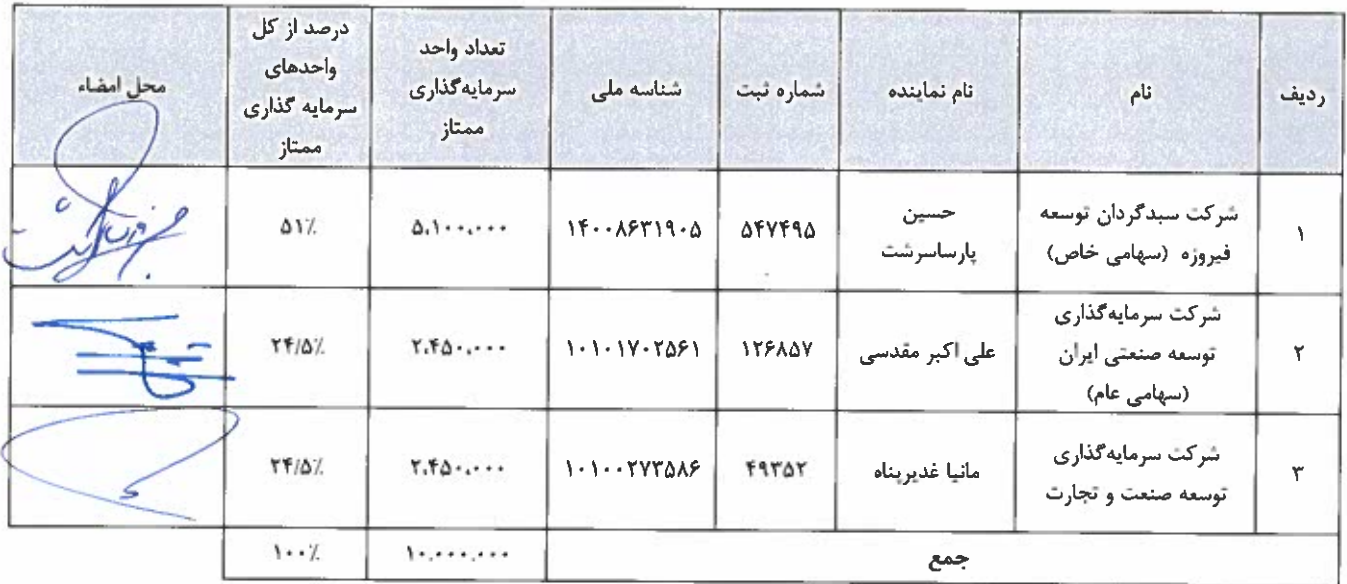 ردیف
نام
نام نماینده
شماره ثبت
شناسه ملی
تعداد واحد
سرمایه‌گذاری
ممتاز
درصد از کل
واحدهای
سرمایه گذاری
ممتاز
محل امضاء
۱
شرکت سبدگردان توسعه
فیروزه (سهامی خاص)
حسین
پارساسرشت
۵۴۷۴۹۵
۱۴۰۰۸۶۳۱۹۰۵
۵,۱۰۰,۰۰۰
۵۱٪
۲
شرکت سرمایه‌گذاری
توسعه صنعتی ایران
(سهامی عام)
علی اکبر مقدسی
۱۲۶۸۵۷
۱۰۱۰۱۷۰۲۵۶۱
۲,۴۵۰,۰۰۰
۲۴/۵٪
۳
شرکت سرمایه‌گذاری
توسعه صنعت و تجارت
مانیا غدیرپناه
۴۹۳۵۲
۱۰۱۰۰۲۷۳۵۸۶
۲,۴۵۰,۰۰۰
۲۴/۵٪
جمع
۱۰,۰۰۰,۰۰۰
۱۰۰٪